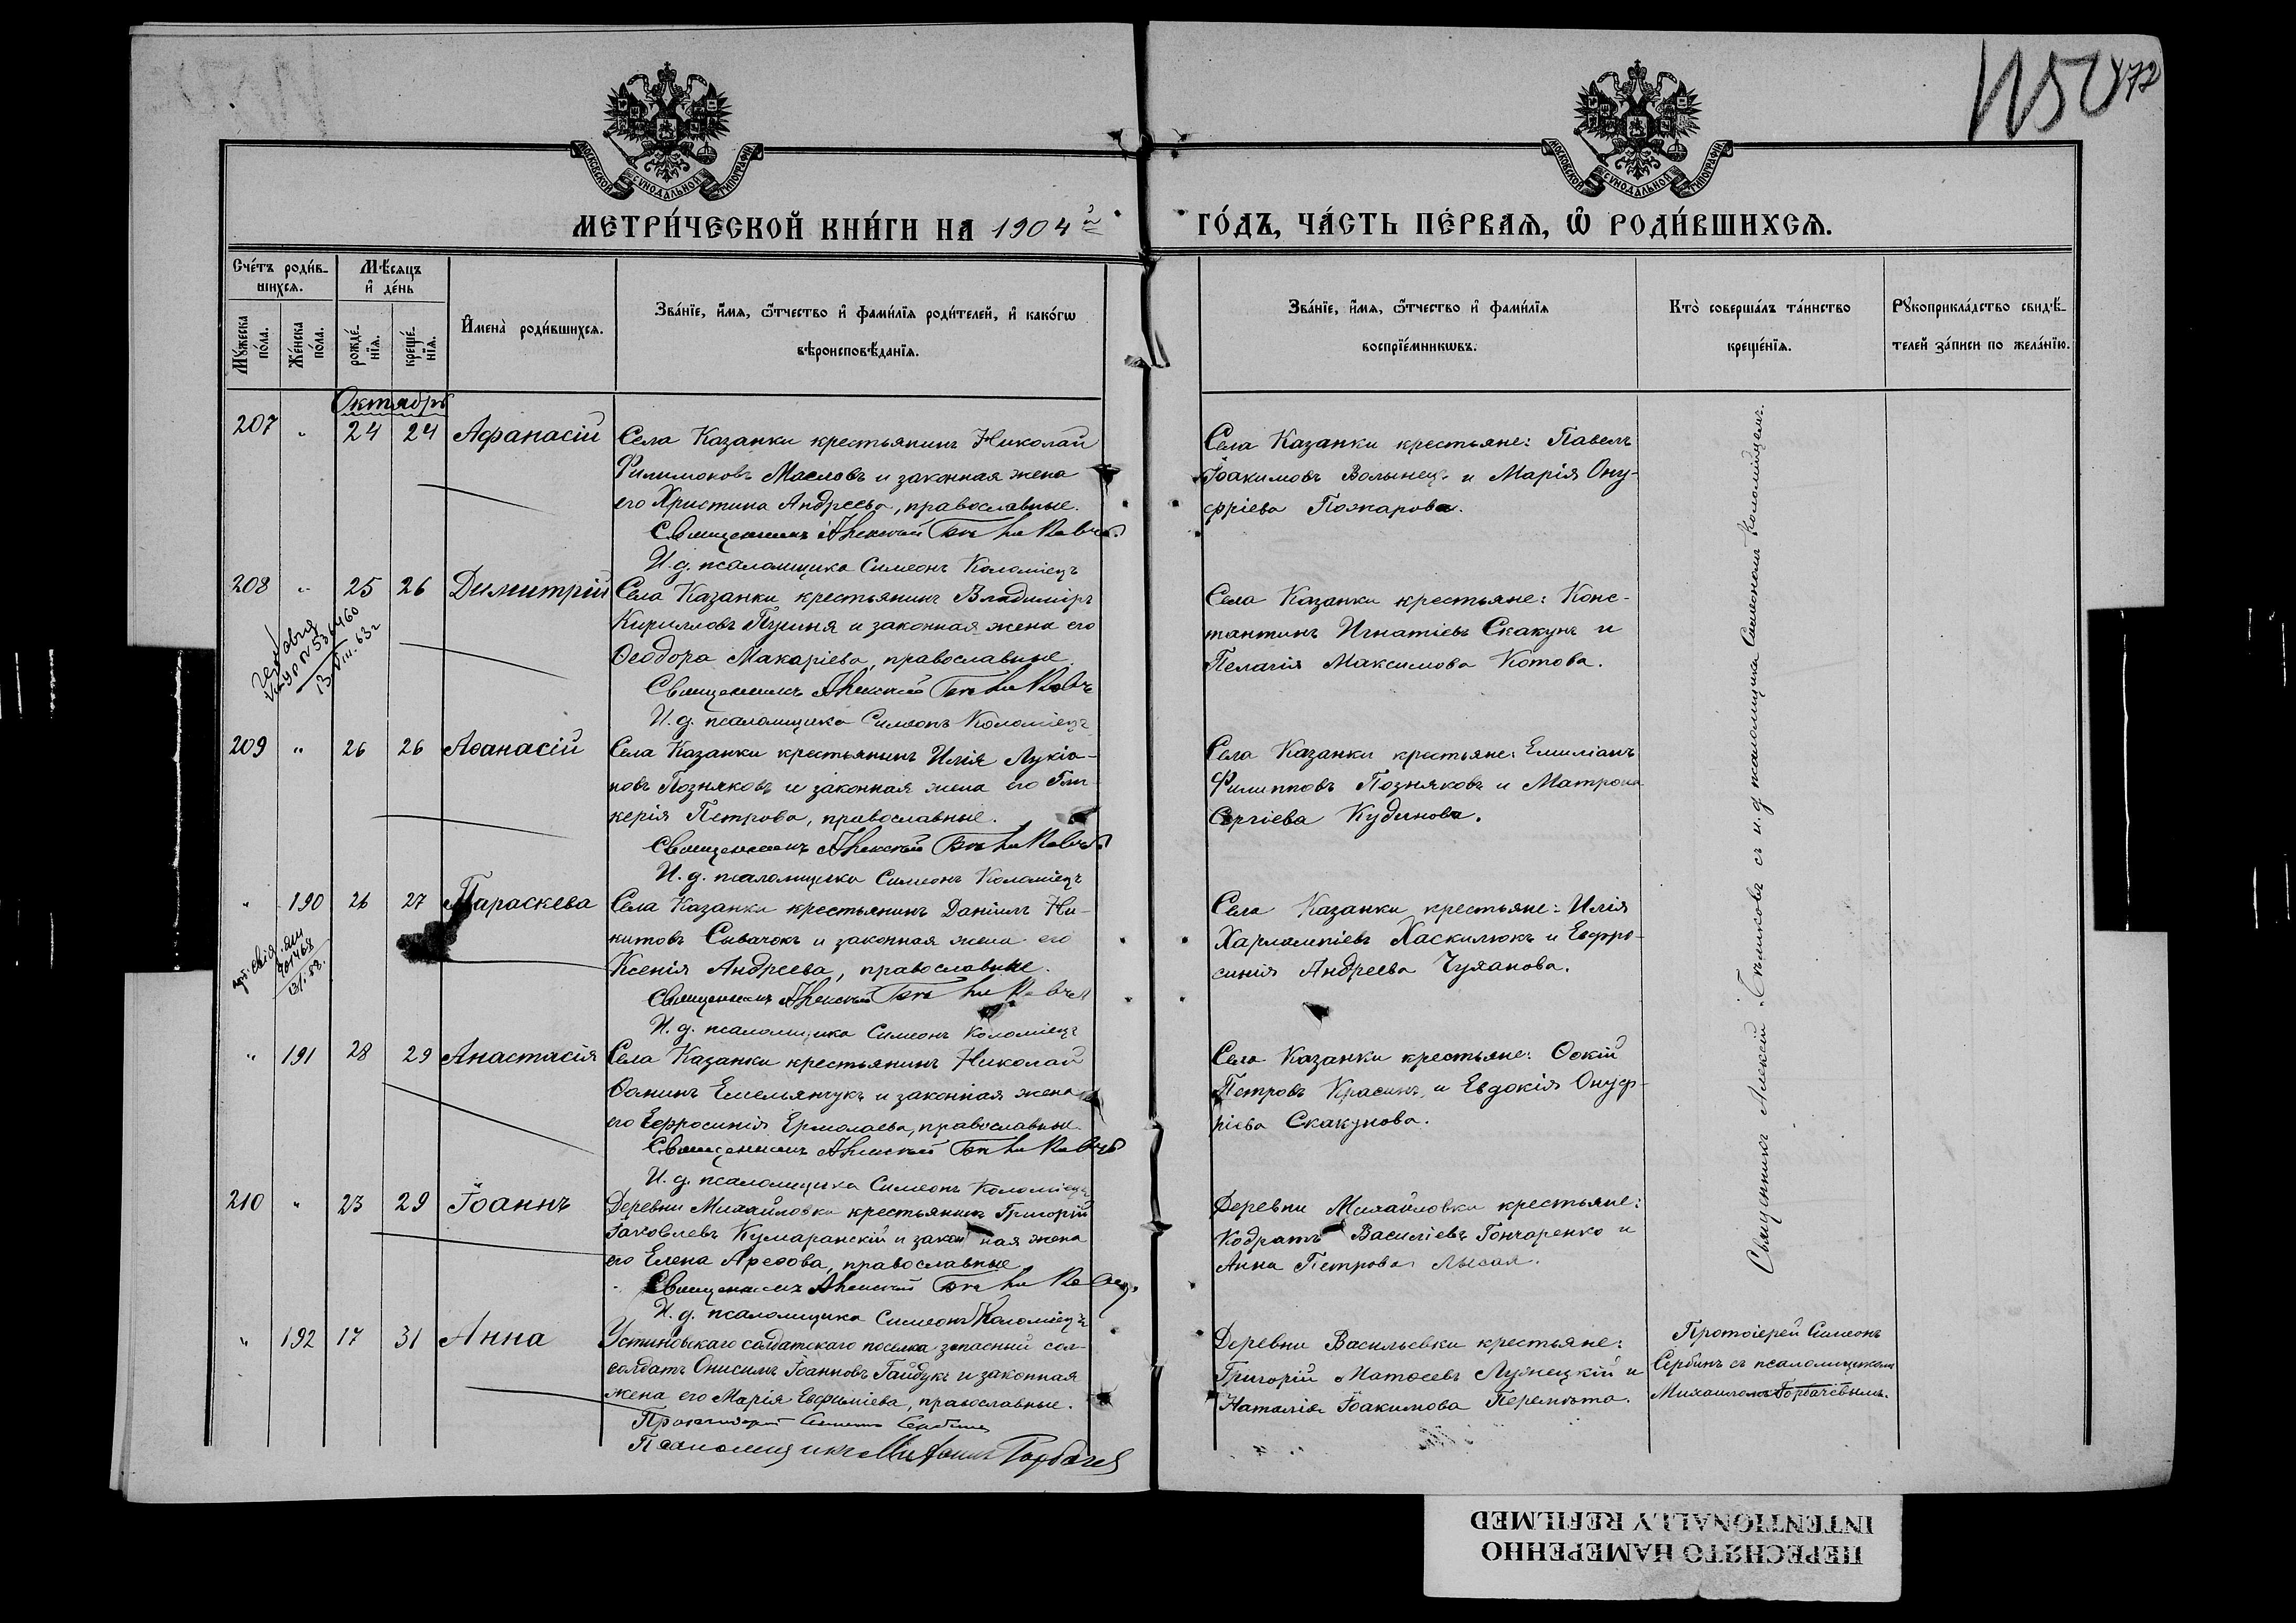 1150
472
МОСКОВСКОЙ СѴНОДАЛЬНОЙ ТИПОГРАФІИ
МОСКОВСКОЙ СѴНОДАЛЬНОЙ ТИПОГРАФІИ
МЕТРИ́ЧЕСКОЙ КНИ́ГИ НА 1904 й ГО́ДЪ, ЧА́СТЬ ПЕ́РВАѦ, Ѡ РОДИ́ВШИХСѦ.
Сче́тъ роди́в-
шихсѧ.
Мꙋ́жеска по́ла.
Же́нска по́ла.
Мѣ́сѧцъ
и҆ де́нь
рожде́-
нїѧ.
креще́-
нїѧ.
И҆мена̀ роди́вшихсѧ.
Зва́нїе, и҆́мѧ, ѻ҆́тчество и҆ фами́лїѧ роди́телей, и҆ како́гѡ
вѣроисповѣ́данїѧ.
Зва́нїе, и҆́мѧ, ѻ҆́тчество и҆ фами́лїѧ
воспрїе́мникѡвъ.
Кто̀ соверша́лъ та́инство
креще́нїѧ.
Рꙋкоприкла́дство свидѣ́-
телей за́писи по жела́нїю.
Октябрь
207 " 24 24 Афанасій
Села Казанки крестьянинъ Николай
Филимоновъ Масловъ и законная жена
его Христина Андреева, православные.
Священникъ Алексей
И. д. псаломщика Симеонъ Коломіецъ
Села Казанки крестьяне: Павелъ
Іоакимовъ Волынец. и Марія Ону-
фріева Пожарова.
208 " 25 26 Димитрій
536460
13. VIII. 63 г
Села Казанки крестьянинъ Владиміръ
Кирилловъ Пугиня и законная жена его
Ѳеодора Макаріева, православные.
Священникъ Алексей
И. д. псаломщика Симеонъ Коломіецъ
Села Казанки крестьяне: Конс-
тантинъ Игнатіевъ Скакунъ и
Пелагія Максимова Котова.
209 " 26 26 Аѳанасій
Села Казанки крестьянинъ Илія Лукіа-
новъ Позняковъ и законная жена его Гли-
керія Петрова, православные.
Священникъ Алексей
И. д. псаломщика Симеонъ Коломіецъ
Села Казанки крестьяне: Емиліанъ
Филипповъ Позняковъ и Матрона
Сергіева Кудинова.
" 190 26 27 Параскева
Села Казанки крестьянинъ Даніилъ Ни-
китовъ Сывачокъ и законная жена его
Ксенія Андреева, православные.
Священникъ Алексей
И. д. псаломщика Симеонъ Коломіецъ
Села Казанки крестьяне: Илія
Харлампіевъ Хаскилюкъ и Евфро-
синія Андреева Чуланова.
" 191 28 29 Анастасія
Села Казанки крестьянинъ Николай
Ѳоминъ Емельянчукъ и законная жена
его Евфросинія Ермолаева, православные.
Священникъ Алексей
И. д. псаломщика Симеонъ Коломіецъ
Села Казанки крестьяне: Ѳокій
Петровъ Красинъ и Евдокія Онуф-
ріева Скакунова.
210 " 23 29 Іоаннъ
Деревни Михайловки крестьянинъ Григорій
Іаковлевъ Кумаранскій и законная жена
его Елена Ареѳова, православные
Священникъ Алексей
И. д. псаломщика Симеонъ Коломіецъ
Деревни Михайловки крестьяне:
Кодратъ Василіевъ Гончаренко и
Анна Петрова Лысая.
Священникъ Алексій съ и. д. псаломщика Симеономъ Коломійцемъ.
" 192 17 31 Анна
Устиновскаго солдатскаго поселка запасный сол-
солдатъ Онисимъ Іоанновъ Гайдукъ и законная
жена его Марія Евфиміева, православные.
Протоиерей Симеонъ Сербинъ
Псаломщикъ Михаилъ Горбачев
Деревни Васильевки крестьяне:
Григорій Матѳеевъ Лужецкій и
Наталія Іоакимова Перемѣта.
Протоіерей Симеонъ
Сербинъ съ псаломщикомъ
Михаиломъ Горбачевымъ.
ПЕРЕСНЯТО НАМЕРЕННО
INTENTIONALLY REFILMED